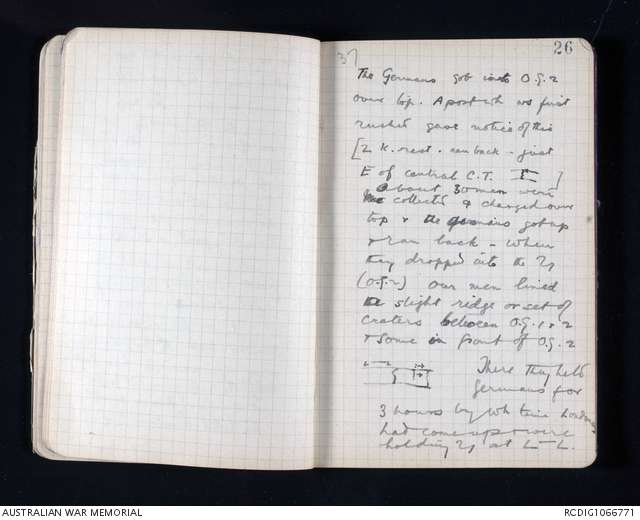 37
26
The Germans got into O.G.2
over top. A post wh was first
rushed gave notice of this
[2 K. rest. ran back - just
E of central C.T. ]
about 30 men were
collected & charged over
top & the Germans got up
& ran back - When
they dropped into the
(O.G.2) our men lined
the slight ridge or set of
craters between O.G.1 & 2
& some in front of O.G.2
There they held
Germans for
3 hours by wh time
had come up & were
holding at L - L.
AUSTRALIAN WAR MEMORIAL
RCDIG1066771